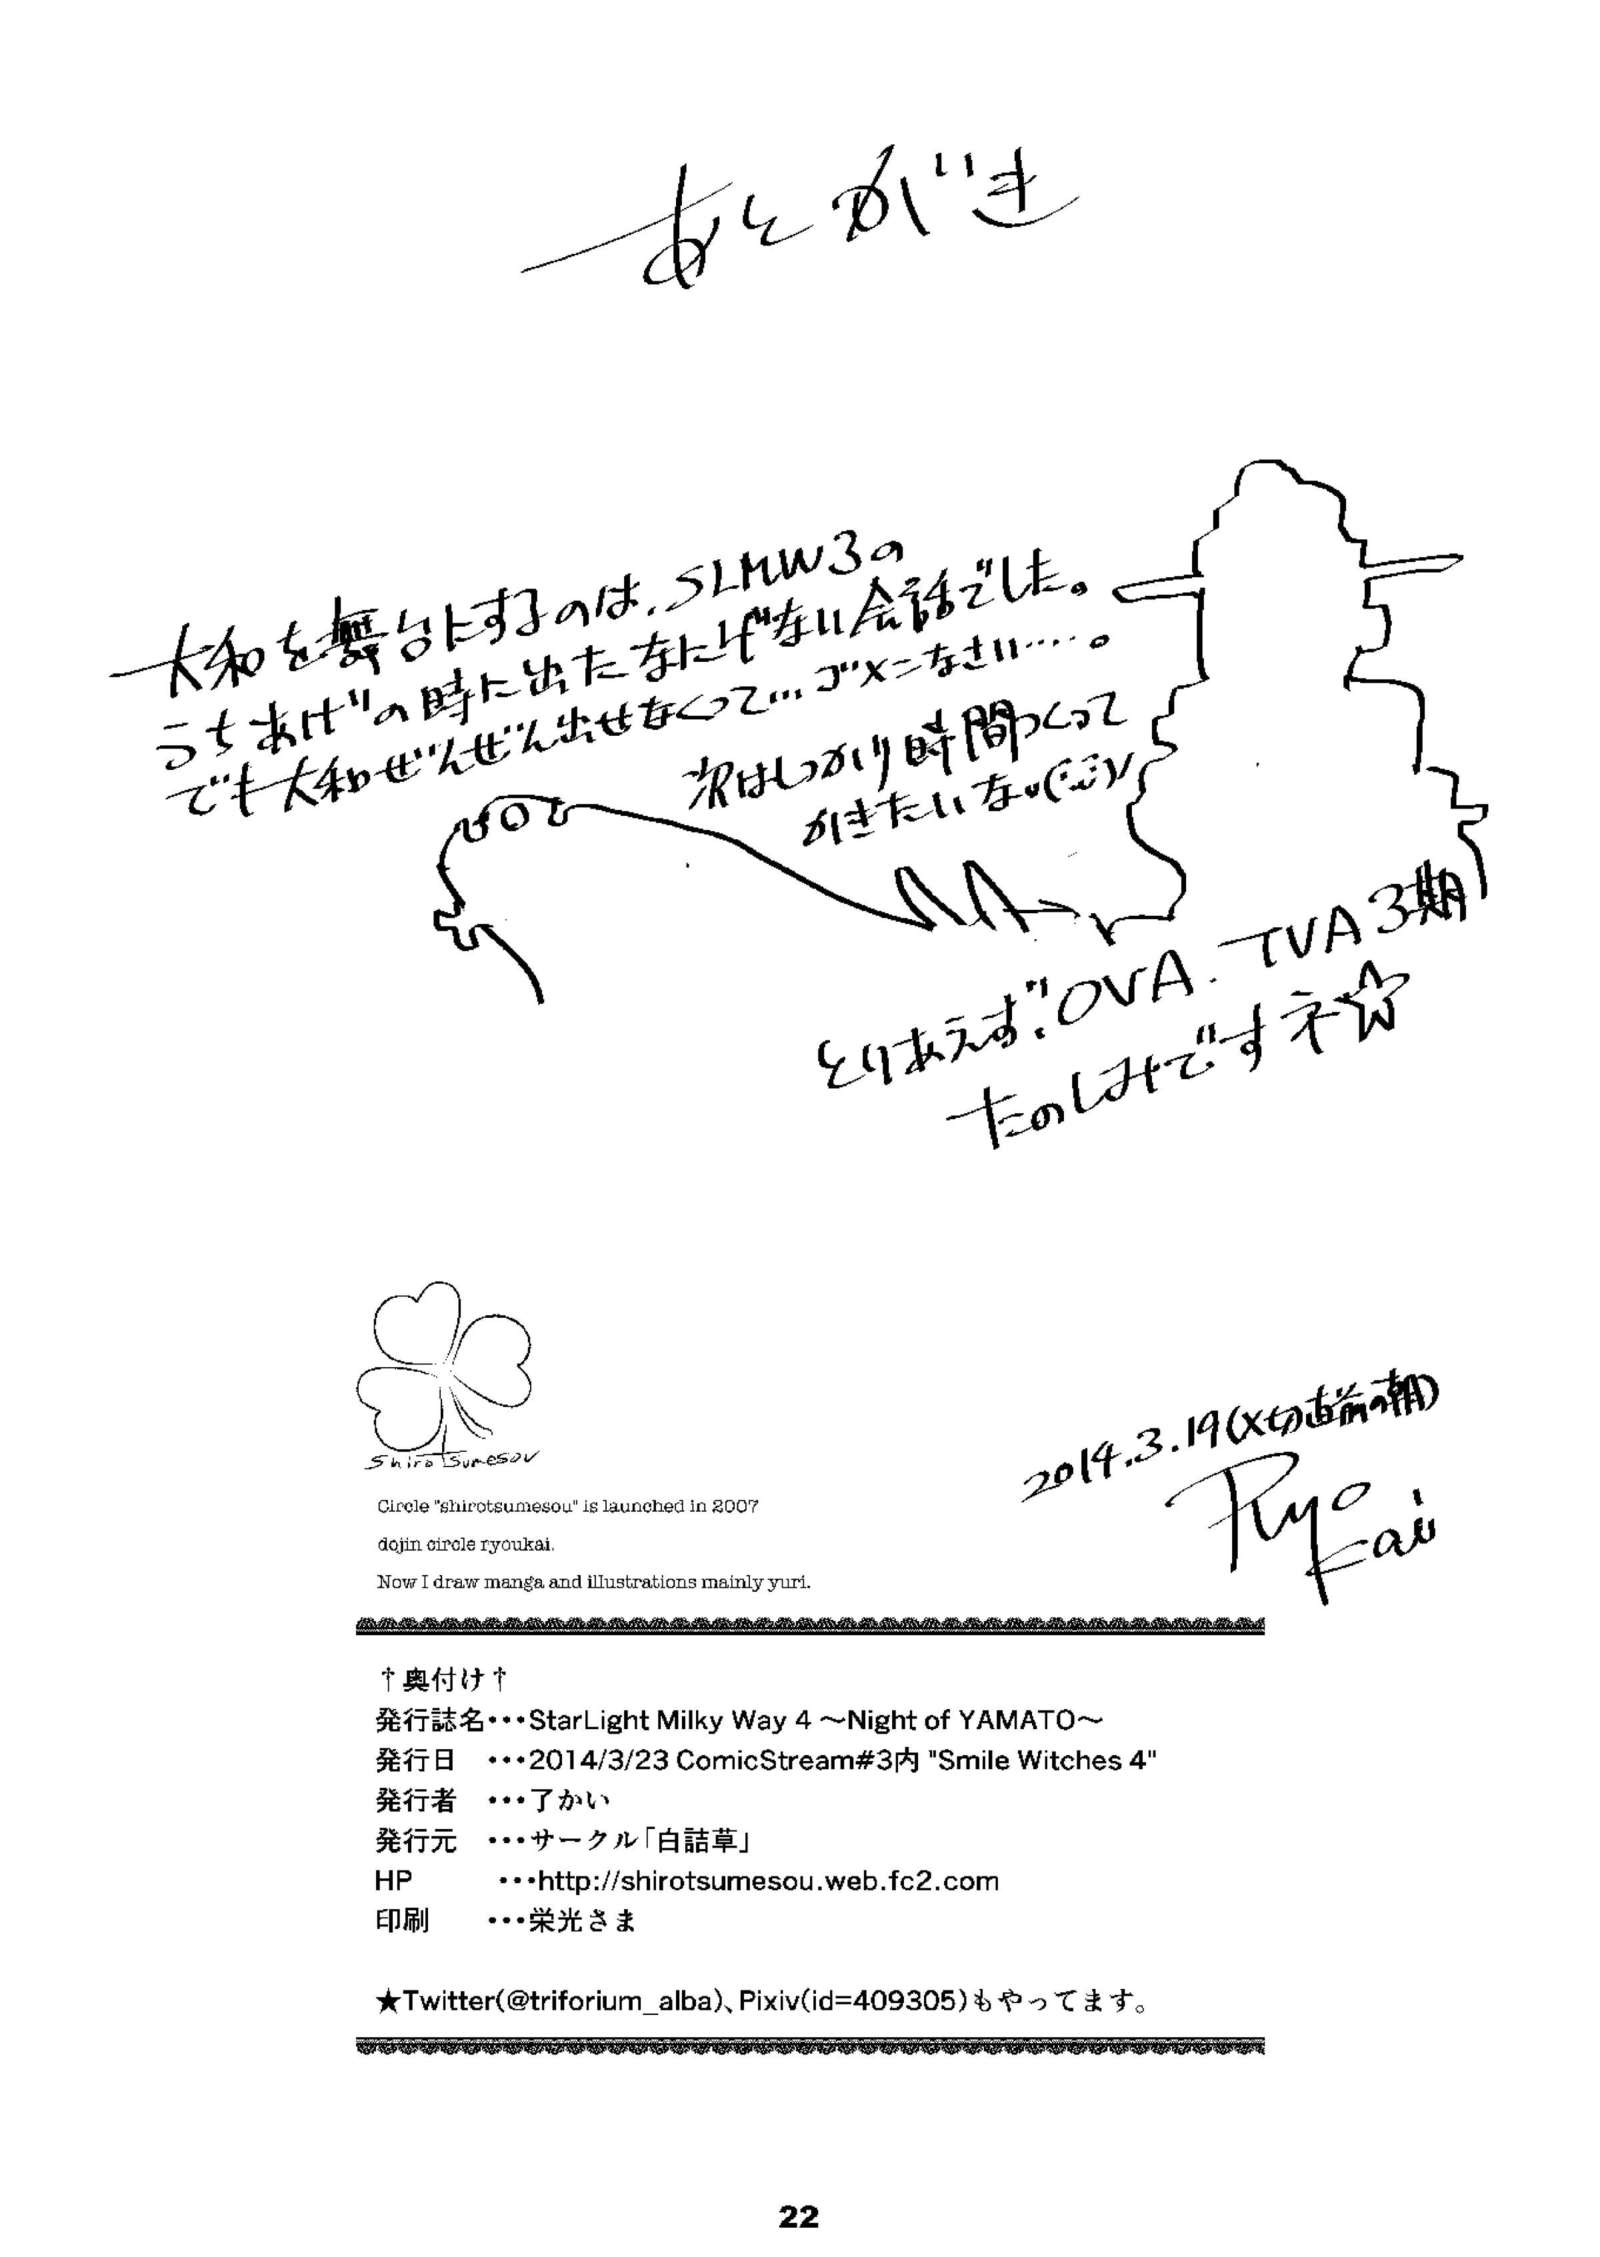 あとがき
大和を舞台にするのは、SLMW3の
うちあげの時に出たなにげない会話でした。
でも大和ぜんぜん出せなくって…ゴメンなさい…。
次はしっかり時間つくって
かきたいなぁ(;;)/
とりあえず、OVA.TVA3期
たのしみですネ☆
Shirotsumesou
2014.3.19(〆切直前の朝)
Ryo
Kai
Circle "shirotsumesou" is launched in 2007
dojin circle ryoukai.
Now I draw manga and illustrations mainly yuri.
†奥付け†
発行誌名・・・StarLight Milky Way 4 ～Night of YAMATO～
発行日　・・・2014/3/23 ComicStream#3内 "Smile Witches 4"
発行者　・・・了かい
発行元　・・・サークル「白詰草」
HP　・・・http://shirotsumesou.web.fc2.com
印刷　・・・栄光さま
★Twitter(@triforium_alba)、Pixiv(id=409305)もやってます。
22